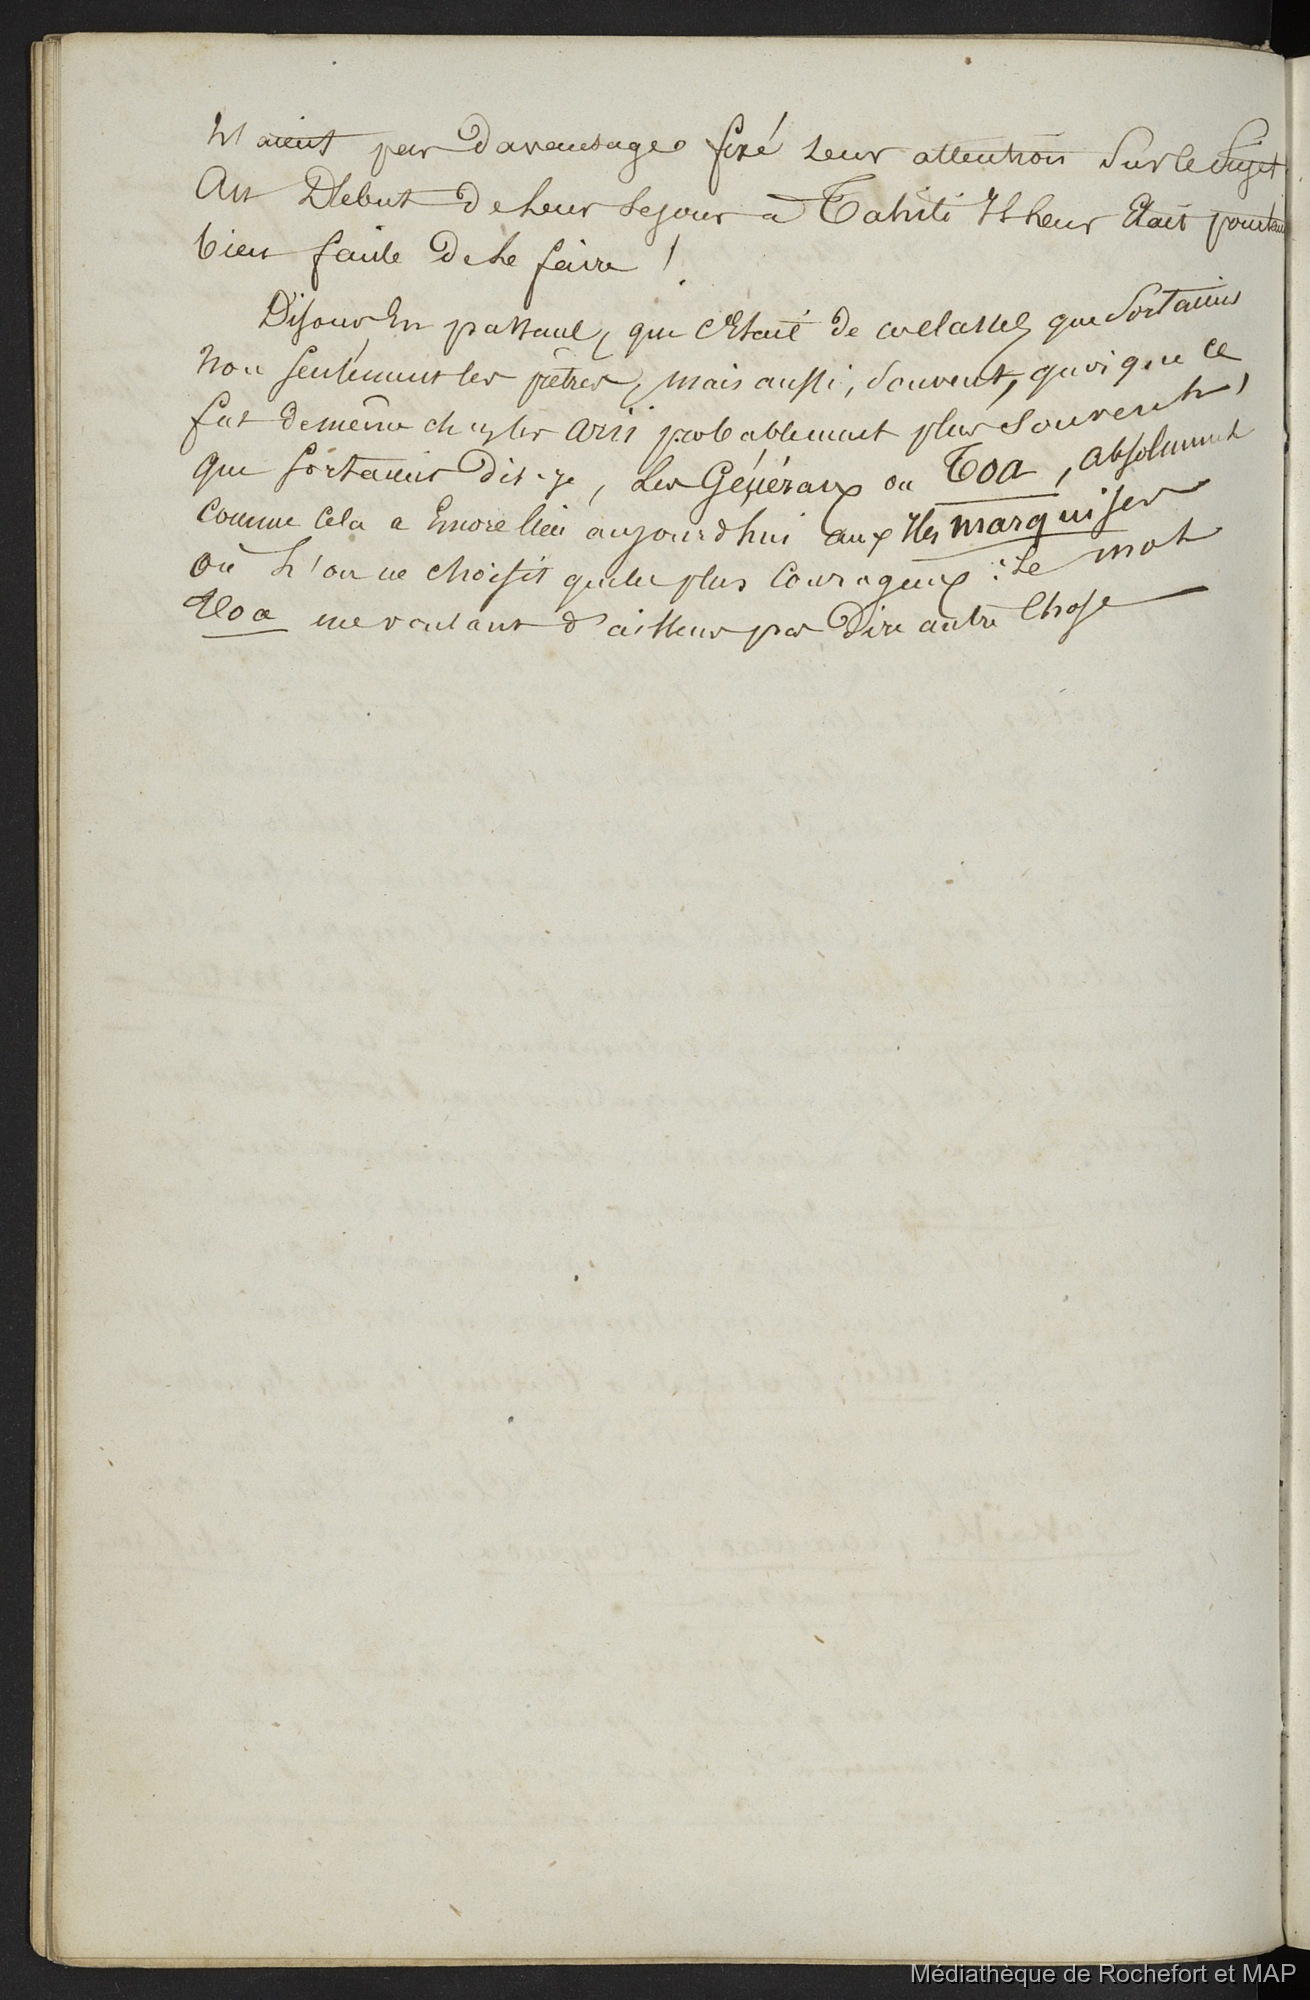 N'aient pas Davantage fixé Leur attention Sur le Sujet
Au Debut De Leur Sejour a Tahiti Il Leur Etait pourtant
bien facile De Le faire !
Disons En passant, que C'Etait de ces classes, que Sortaient
Non Seulement les prêtres, mais aussi, Souvent, quoi que ce
fut De même chez les arii probablement plus Souvent,
que Sortaient Dis-je, Les Généraux ou Toa, absolument
Comme Cela a Encore lieu aujourd'hui aux Iles marquises
Où L'on ne choisit que les plus Courageux : Le mot
Toa ne voulant d'ailleurs pas Dire autre Chose
Médiathèque de Rochefort et MAP